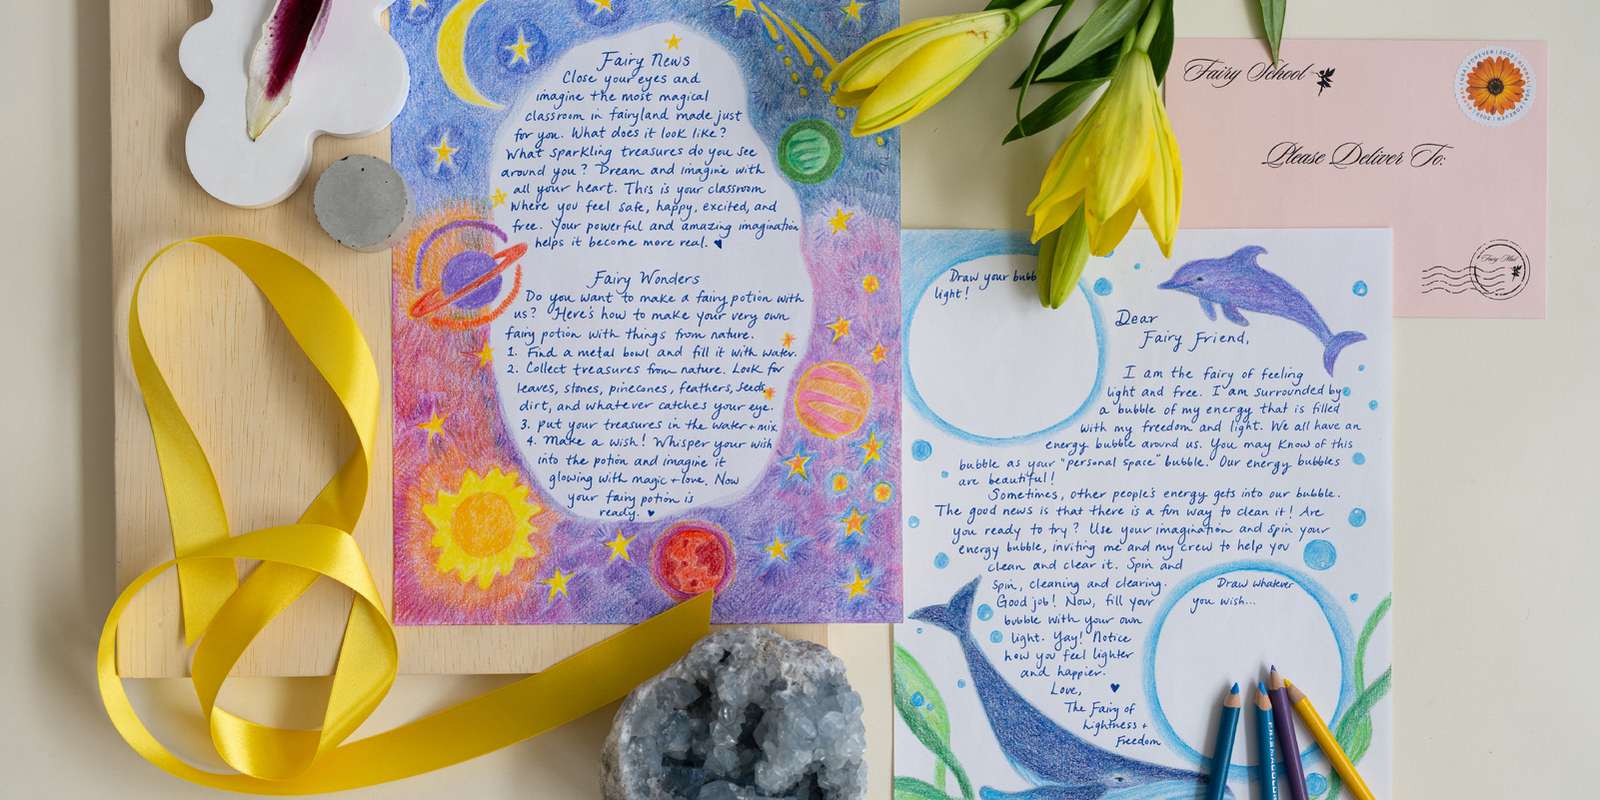 Fairy News
Close your eyes and
imagine the most magical
classroom in fairyland made just
for you. What does it look like?
What sparkling treasures do you see
around you? Dream and imagine with
all your heart. This is your classroom
where you feel safe, happy, excited, and
free. Your powerful and amazing imagination
helps it become more real. ♥
Fairy Wonders
Do you want to make a fairy potion with
us? Here's how to make your very own
fairy potion with things from nature.
1. Find a metal bowl and fill it with water.
2. Collect treasures from nature. Look for
leaves, stones, pinecones, feathers, seeds,
dirt, and whatever catches your eye.
3. put your treasures in the water + mix
4. Make a wish! Whisper your wish
into the potion and imagine it
glowing with magic + love. Now
your fairy potion is
ready. ♥
Fairy School
Please Deliver To:
Fairy Mail
Draw your bubb
light!
Dear
Fairy Friend,
I am the fairy of feeling
light and free. I am surrounded by
a bubble of my energy that is filled
with my freedom and light. We all have an
energy bubble around us. You may know of this
bubble as your "personal space" bubble. Our energy bubbles
are beautiful!
Sometimes, other people's energy gets into our bubble.
The good news is that there is a fun way to clean it! Are
you ready to try? Use your imagination and spin your
energy bubble, inviting me and my crew to help you
clean and clear it. Spin and
spin, cleaning and clearing.
Good job! Now, fill your
bubble with your own
light. Yay! Notice
how you feel lighter
and happier.
Love, ♥
The Fairy of
Lightness +
Freedom
Draw whatever
you wish...